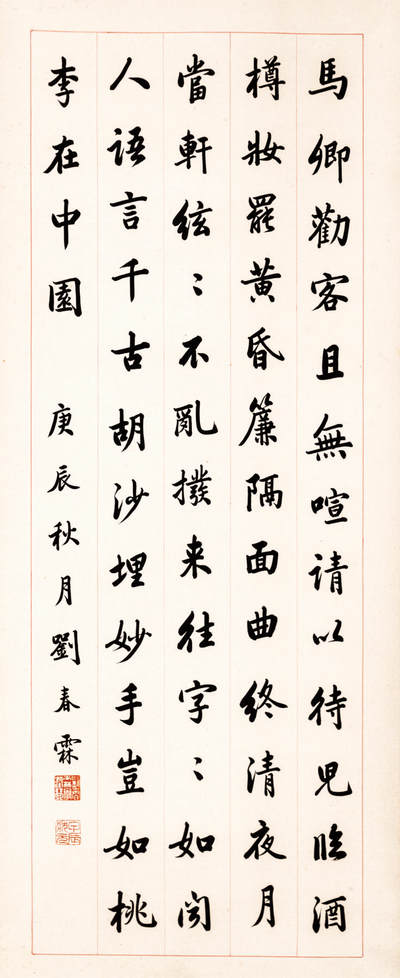 馬卿勸客且無喧請以待兒臨酒
樽妝罷黃昏簾隔面曲終清夜月
當軒絃〻不亂撥来往字〻如聞
人語言千古胡沙埋妙手豈如桃
李在中園 庚辰秋月劉春霖